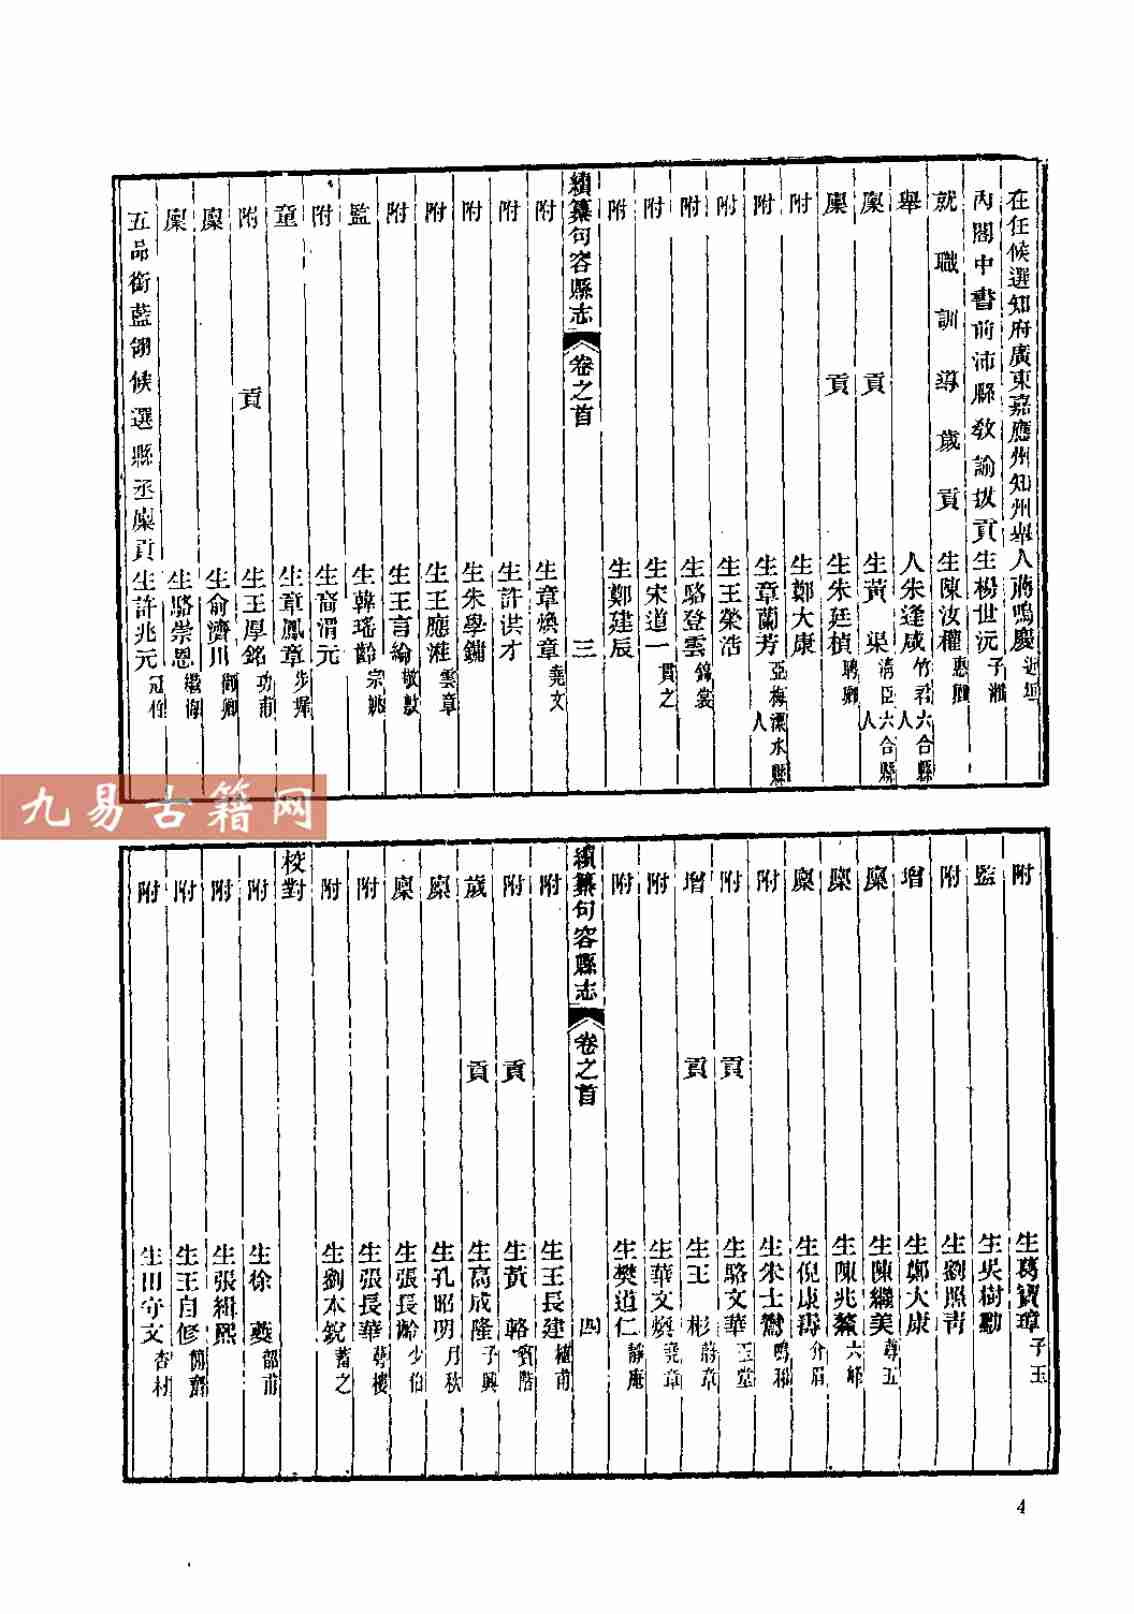 在任候選知府廣東嘉應州知州舉人蔣鳴慶近垣
內閣中書前沛縣教諭拔貢生楊世沅子湘
就職訓導歲貢生陳汝權惠卿
舉人朱逢咸竹君六合縣人
廩貢生黃渠清臣六合縣人
廩貢生朱廷楨聘卿
附生鄭大康
附生章蘭芳亞梅溧水縣人
附生王榮浩
附生駱登雲錦裳
附生宋道一貫之
附生鄭建辰
續纂句容縣志 卷之首 三
附生章煥章堯文
附生許洪才
附生朱學鏞
附生王應漄雲章
附生王言綸敬敷
監生韓瑤齡宗姚
附生裔渭元
童生章鳳章步墀
附貢生王厚銘功甫
廩生俞濟川衢卿
廩生駱崇恩繼海
五品銜藍翎候選縣丞廩貢生許兆元冠伯
九易古籍网
附生葛寶璋子玉
監生吳樹勳
附生劉照青
增生鄭大康
廩生陳繼美尊五
廩生陳兆鰲六峰
廩生倪康壽介眉
附生朱士鸞鳴和
附貢生駱文華玉堂
增貢生王彬蔚章
附生華文煥堯章
附生樊道仁靜庵
續纂句容縣志 卷之首 四
附生王長建植甫
附貢生黃輅質階
歲貢生高成隆子興
廩生孔昭明月秋
廩生張長齡少伯
附生張長華蕚樓
附生劉本銳蓄之
校對
附生徐夔韶甫
附生張緝熙
附生王自修勉齋
附生田守文杏村
4